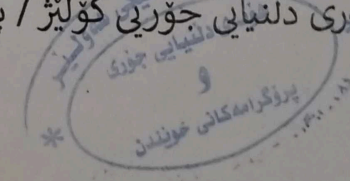 ری دڵنیایی جۆریی کۆلێژ /
دڵنیایی جۆری
و
پرۆگرامەکانی خوێندن